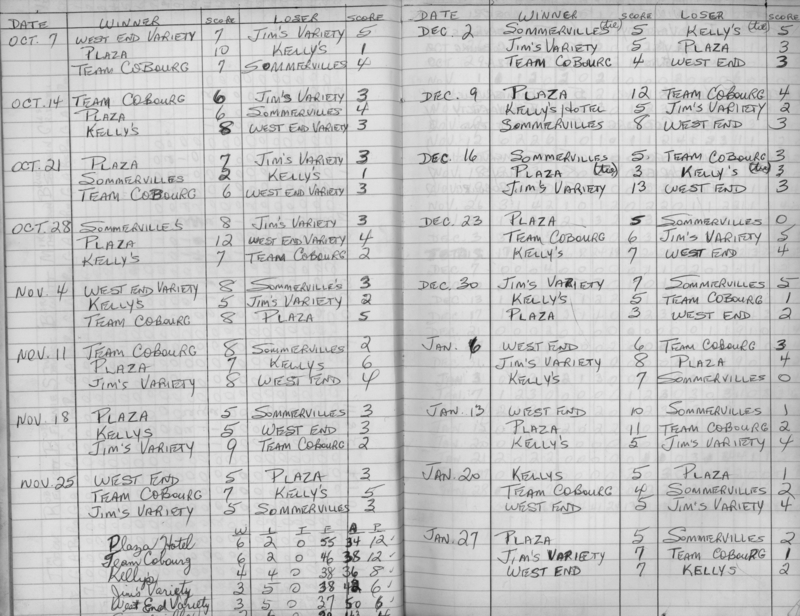 DATE WINNER SCORE LOSER SCORE
OCT. 7 WEST END VARIETY 7 JIM'S VARIETY 5
PLAZA 10 KELLY'S 1
TEAM COBOURG 7 SOMMERVILLES 4
OCT. 14 TEAM COBOURG 6 JIM'S VARIETY 3
PLAZA 6 SOMMERVILLES 4
KELLY'S 8 WEST END VARIETY 3
OCT. 21 PLAZA 7 JIM'S VARIETY 3
SOMMERVILLES 2 KELLY'S 1
TEAM COBOURG 6 WEST END VARIETY 3
OCT. 28 SOMMERVILLE'S 8 JIM'S VARIETY 3
PLAZA 12 WEST END VARIETY 4
KELLY'S 7 TEAM COBOURG 2
NOV. 4 WEST END VARIETY 8 SOMMERVILLES 3
KELLY'S 5 JIM'S VARIETY 2
TEAM COBOURG 8 PLAZA 5
NOV. 11 TEAM COBOURG 8 SOMMERVILLES 2
PLAZA 7 KELLYS 6
JIM'S VARIETY 8 WEST END 4
NOV. 18 PLAZA 5 SOMMERVILLES 3
KELLYS 5 WEST END 3
JIM'S VARIETY 9 TEAM COBOURG 2
NOV. 25 WEST END 5 PLAZA 3
TEAM COBOURG 7 KELLY'S 5
JIM'S VARIETY 5 SOMMERVILLES 3
W L T F A P
Plaza Hotel 6 2 0 55 34 12
Team Cobourg 6 2 0 46 38 12
Kellys 4 4 0 38 36 8
Jim's Variety 3 5 0 38 42 6
West End Variety 3 5 0 37 50 6
DATE WINNER SCORE LOSER SCORE
DEC. 2 SOMMERVILLES (tie) 5 KELLY'S (tie) 5
JIM'S VARIETY 5 PLAZA 3
TEAM COBOURG 4 WEST END 3
DEC. 9 PLAZA 12 TEAM COBOURG 4
KELLY'S HOTEL 5 JIM'S VARIETY 2
SOMMERVILLES 8 WEST END 3
DEC. 16 SOMMERVILLES 5 TEAM COBOURG 3
PLAZA (tie) 3 KELLY'S (tie) 3
JIM'S VARIETY 13 WEST END 3
DEC. 23 PLAZA 5 SOMMERVILLES 0
TEAM COBOURG 6 JIM'S VARIETY 5
KELLY'S 7 WEST END 4
DEC. 30 JIM'S VARIETY 7 SOMMERVILLES 5
KELLY'S 5 TEAM COBOURG 1
PLAZA 3 WEST END 2
JAN. 6 WEST END 6 TEAM COBOURG 3
JIM'S VARIETY 8 PLAZA 4
KELLY'S 7 SOMMERVILLES 0
JAN. 13 WEST END 10 SOMMERVILLES 1
PLAZA 11 TEAM COBOURG 2
KELLY'S 5 JIM'S VARIETY 4
JAN. 20 KELLYS 5 PLAZA 1
TEAM COBOURG 4 SOMMERVILLES 2
WEST END 5 JIM'S VARIETY 4
JAN. 27 PLAZA 5 SOMMERVILLES 2
JIM'S VARIETY 7 TEAM COBOURG 1
WEST END 7 KELLYS 2